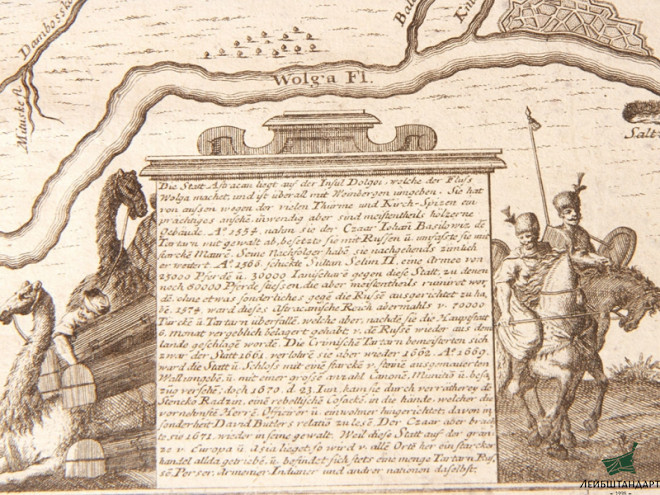 Danboska
Wolga Fl.
Salt
Die Statt Astracan liegt auf der Insul Dolgoi, welche der Fluss
Wolga machet, und ist überall mit Weinbergen umgeben. Sie hat
von aussen wegen der vielen Thürne und Kirch-Spizen ein
prächtiges ansehē, inwendig aber sind meistentheils hölzerne
Gebäude. Aº 1554. nahm sie der Czaar Johañ Basilowiz dē
Tartarn mit gewalt ab, besetzte sie mit Russen ü. umfasste sie mit
starckē Maurē. Seine Nachfolger habē sie nachgehends zimlich
erweitert. Aº 1568 schickte Sultan Selim II. eine Armee von
25000 Pferdē ü. 30000 Janitscharē gegen diese Statt, zu denen
noch 80000 Pferde stiessen, die aber meistentheils ruinirt wor
dē, ohne etwas sonderliches gegē die Russē ausgerichtet zu ha,
bē. 1574. ward dieses Astracanische Reich abermahls v. 70000
Türckē ü Tartarn überfallē, welche aber, nachdē sie die Hauptstatt
Monat vergeblich belagert gehabt, v. dē Russē wieder aus dem
lande geschlagē wordē. Die Crimische Tartarn bemeisterten sich
zwar der Statt 1661. verlohrē sie aber wieder 1662. Aº 1669.
ward die Statt ü Schloss mit eine starckē v. steinē ausgemauerten
Wall umgebē, ü. mit einer grosse anzahl Canonē, Munitiō ü. besa,
zug versehē, doch 1670. d. 21 Jun. kam sie durch verrätherey dē
Stencko Radzin, eine rebellischē Cosackē, in die hände, welcher die
vornehmste Herrē, Officirer ü. einwohner hingerichtet; davon in
sonderheit David Butlers relatiō zu lesē. Der Czaar aber brach
te, sie 1671. wieder in seine gewalt. Weil diese Statt auf der grän
ze v. Europa ü. Asia lieget, so wird v. allē Ortē her ein starcker
handel allda getriebē, ü. befindet sich stets eine menge Tartarn, Rus,
sē, Perser, Armenier, Indianer und andrer nationen daselbst.
ЛЕЙБШТАНДАРТ